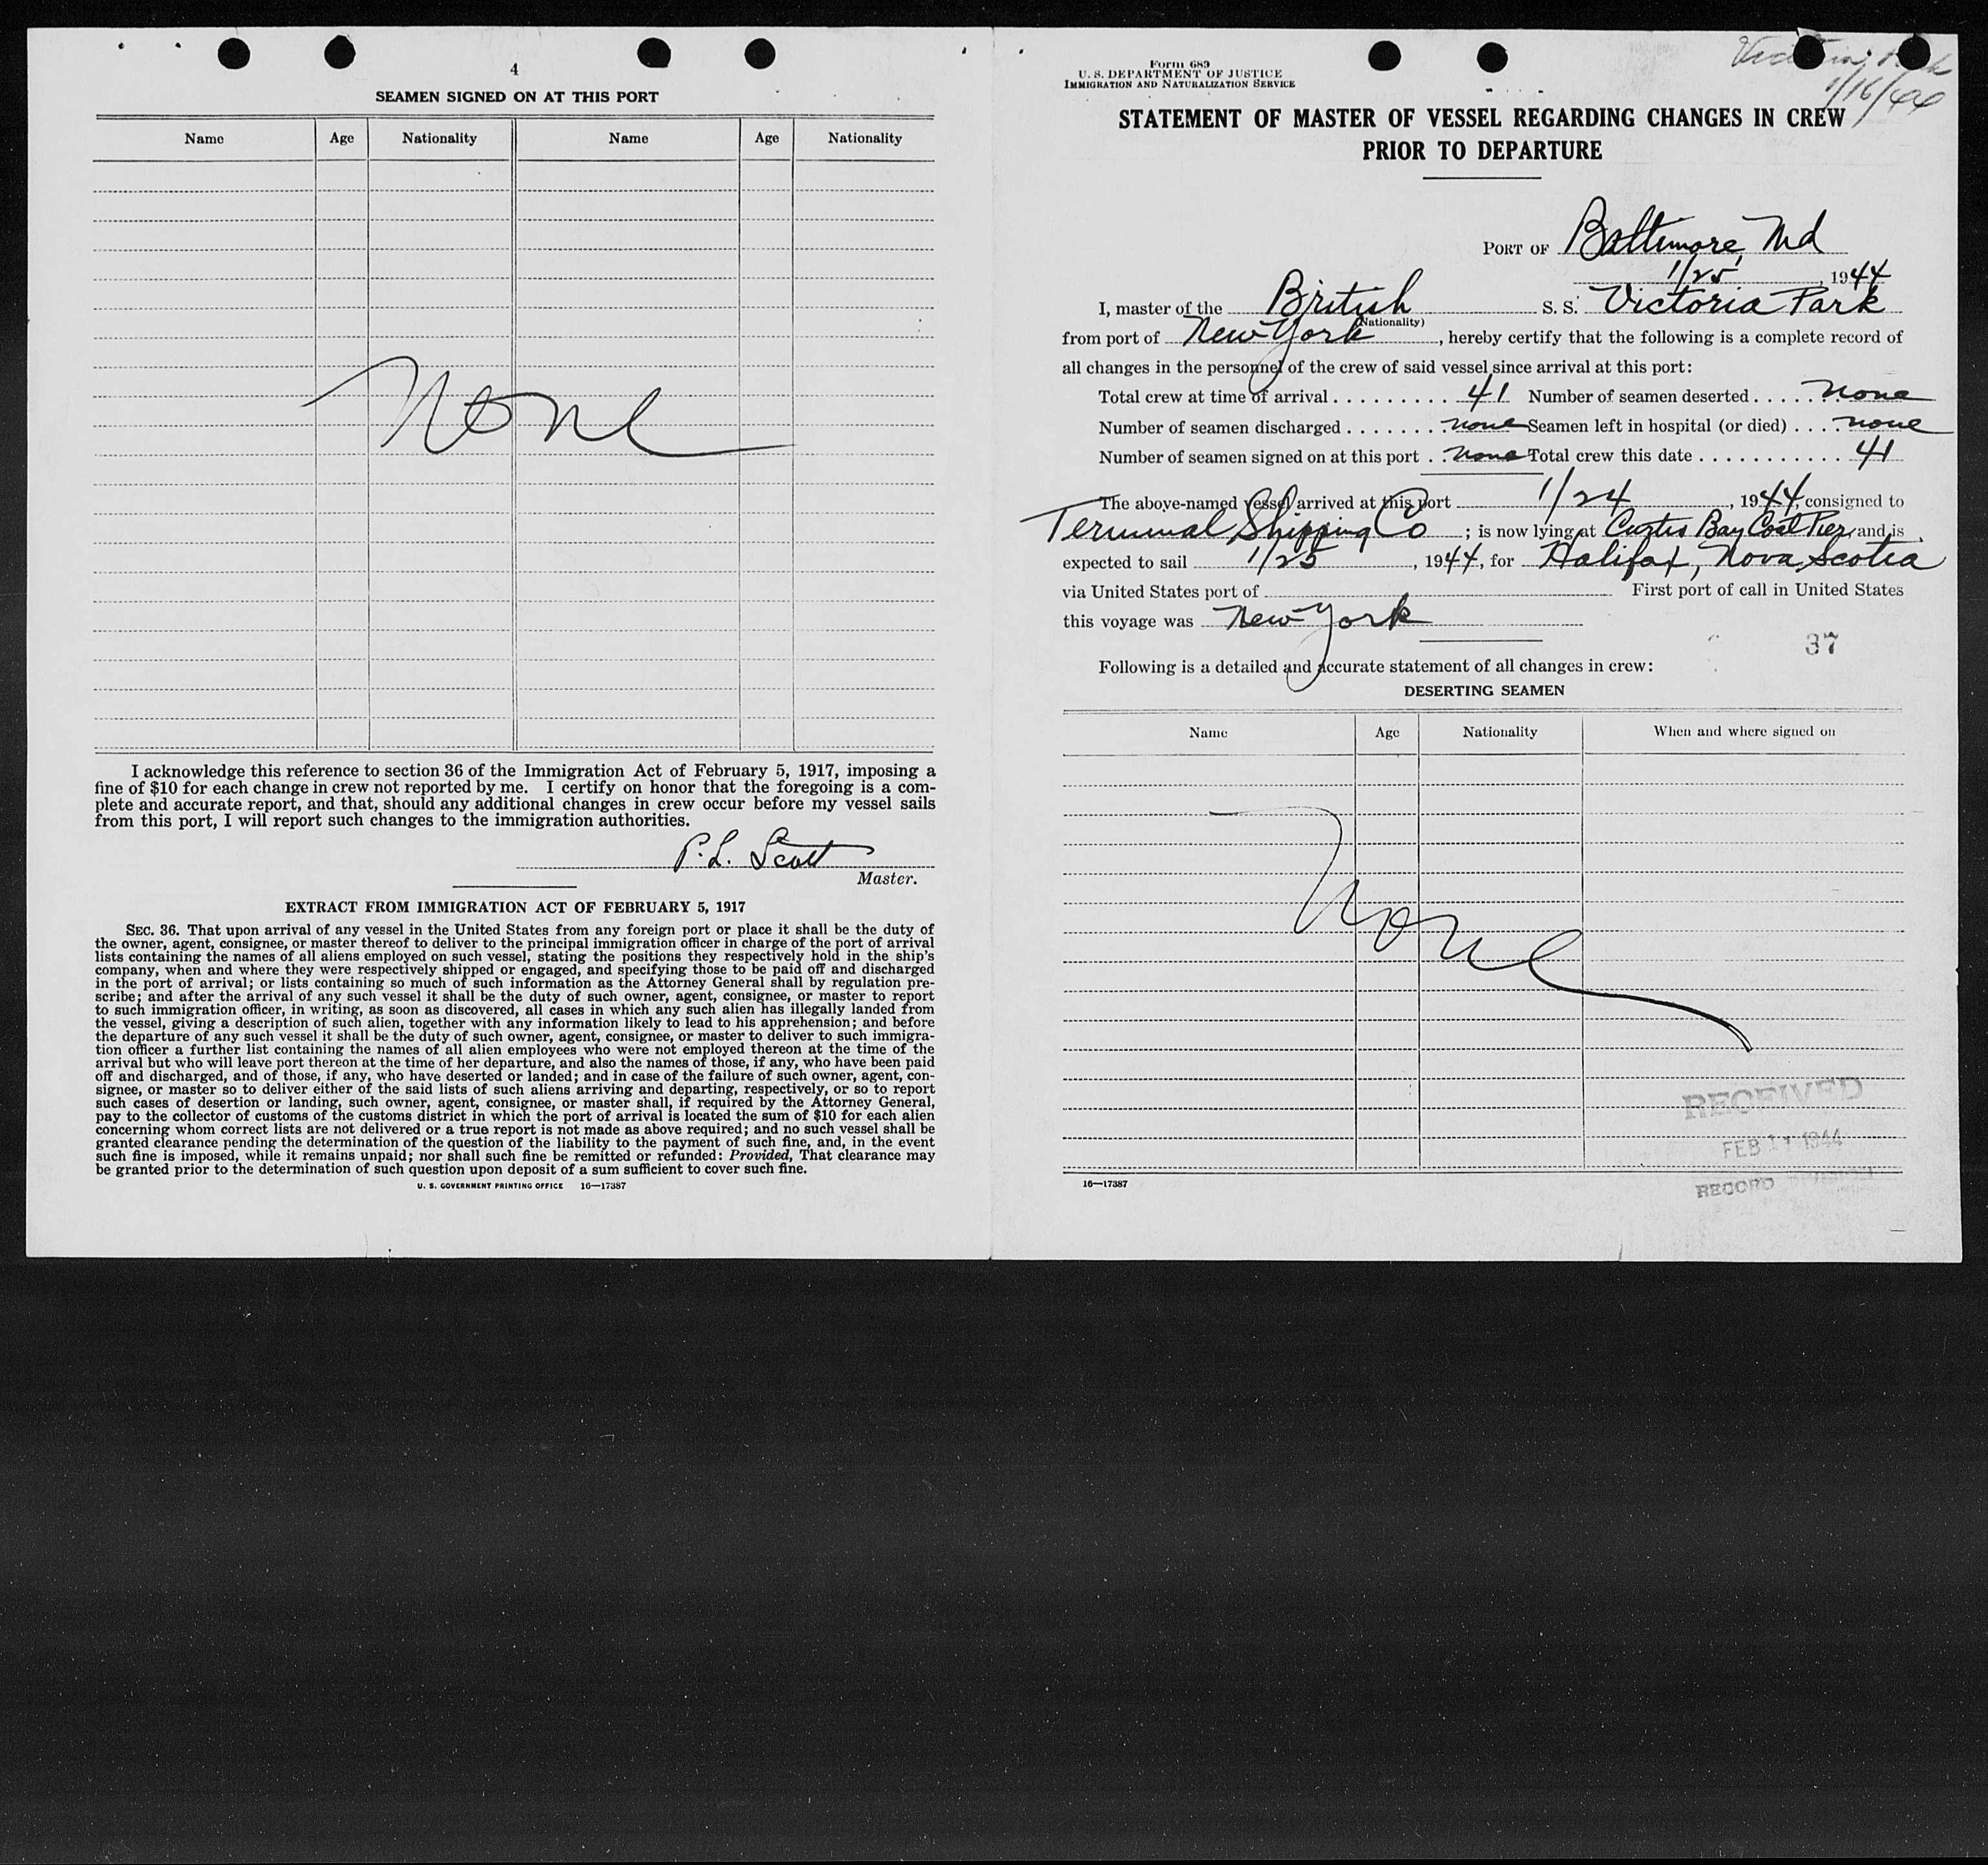 4
SEAMEN SIGNED ON AT THIS PORT
Name Age Nationality Name Age Nationality
None
I acknowledge this reference to section 36 of the Immigration Act of February 5, 1917, imposing a
fine of $10 for each change in crew not reported by me. I certify on honor that the foregoing is a com-
plete and accurate report, and that, should any additional changes in crew occur before my vessel sails
from this port, I will report such changes to the immigration authorities.
P. L. Scott
Master.
EXTRACT FROM IMMIGRATION ACT OF FEBRUARY 5, 1917
SEC. 36. That upon arrival of any vessel in the United States from any foreign port or place it shall be the duty of
the owner, agent, consignee, or master thereof to deliver to the principal immigration officer in charge of the port of arrival
lists containing the names of all aliens employed on such vessel, stating the positions they respectively hold in the ship's
company, when and where they were respectively shipped or engaged, and specifying those to be paid off and discharged
in the port of arrival; or lists containing so much of such information as the Attorney General shall by regulation pre-
scribe; and after the arrival of any such vessel it shall be the duty of such owner, agent, consignee, or master to report
to such immigration officer, in writing, as soon as discovered, all cases in which any such alien has illegally landed from
the vessel, giving a description of such alien, together with any information likely to lead to his apprehension; and before
the departure of any such vessel it shall be the duty of such owner, agent, consignee, or master to deliver to such immigra-
tion officer a further list containing the names of all alien employees who were not employed thereon at the time of the
arrival but who will leave port thereon at the time of her departure, and also the names of those, if any, who have been paid
off and discharged, and of those, if any, who have deserted or landed; and in case of the failure of such owner, agent, con-
signee, or master so to deliver either of the said lists of such aliens arriving and departing, respectively, or so to report
such cases of desertion or landing, such owner, agent, consignee, or master shall, if required by the Attorney General,
pay to the collector of customs of the customs district in which the port of arrival is located the sum of $10 for each alien
concerning whom correct lists are not delivered or a true report is not made as above required; and no such vessel shall be
granted clearance pending the determination of the question of the liability to the payment of such fine, and, in the event
such fine is imposed, while it remains unpaid; nor shall such fine be remitted or refunded: Provided, That clearance may
be granted prior to the determination of such question upon deposit of a sum sufficient to cover such fine.
U. S. GOVERNMENT PRINTING OFFICE 16—17387
Form 689
U. S. DEPARTMENT OF JUSTICE
IMMIGRATION AND NATURALIZATION SERVICE
1/16/44
STATEMENT OF MASTER OF VESSEL REGARDING CHANGES IN CREW
PRIOR TO DEPARTURE
PORT OF Baltimore, Md
1/25, 1944
I, master of the British S. S. Victoria Park
(Nationality)
from port of New York, hereby certify that the following is a complete record of
all changes in the personnel of the crew of said vessel since arrival at this port:
Total crew at time of arrival . . . . . . . . . 41 Number of seamen deserted . . . . . none
Number of seamen discharged . . . . . . . none Seamen left in hospital (or died) . . . . none
Number of seamen signed on at this port . . none Total crew this date . . . . . . . . . . . 41
The above-named vessel arrived at this port 1/24, 1944, consigned to
Terminal Shipping Co; is now lying at Curtis Bay Coal Pier, and is
expected to sail 1/25, 1944, for Halifax, Nova Scotia
via United States port of First port of call in United States
this voyage was New York
37
Following is a detailed and accurate statement of all changes in crew:
DESERTING SEAMEN
Name Age Nationality When and where signed on
None
RECEIVED
FEB 17 1944
RECORD
16—17387